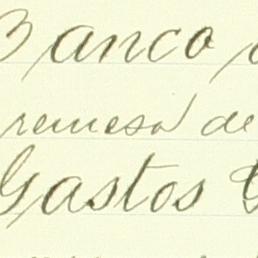 Banco
remesa de
Gastos